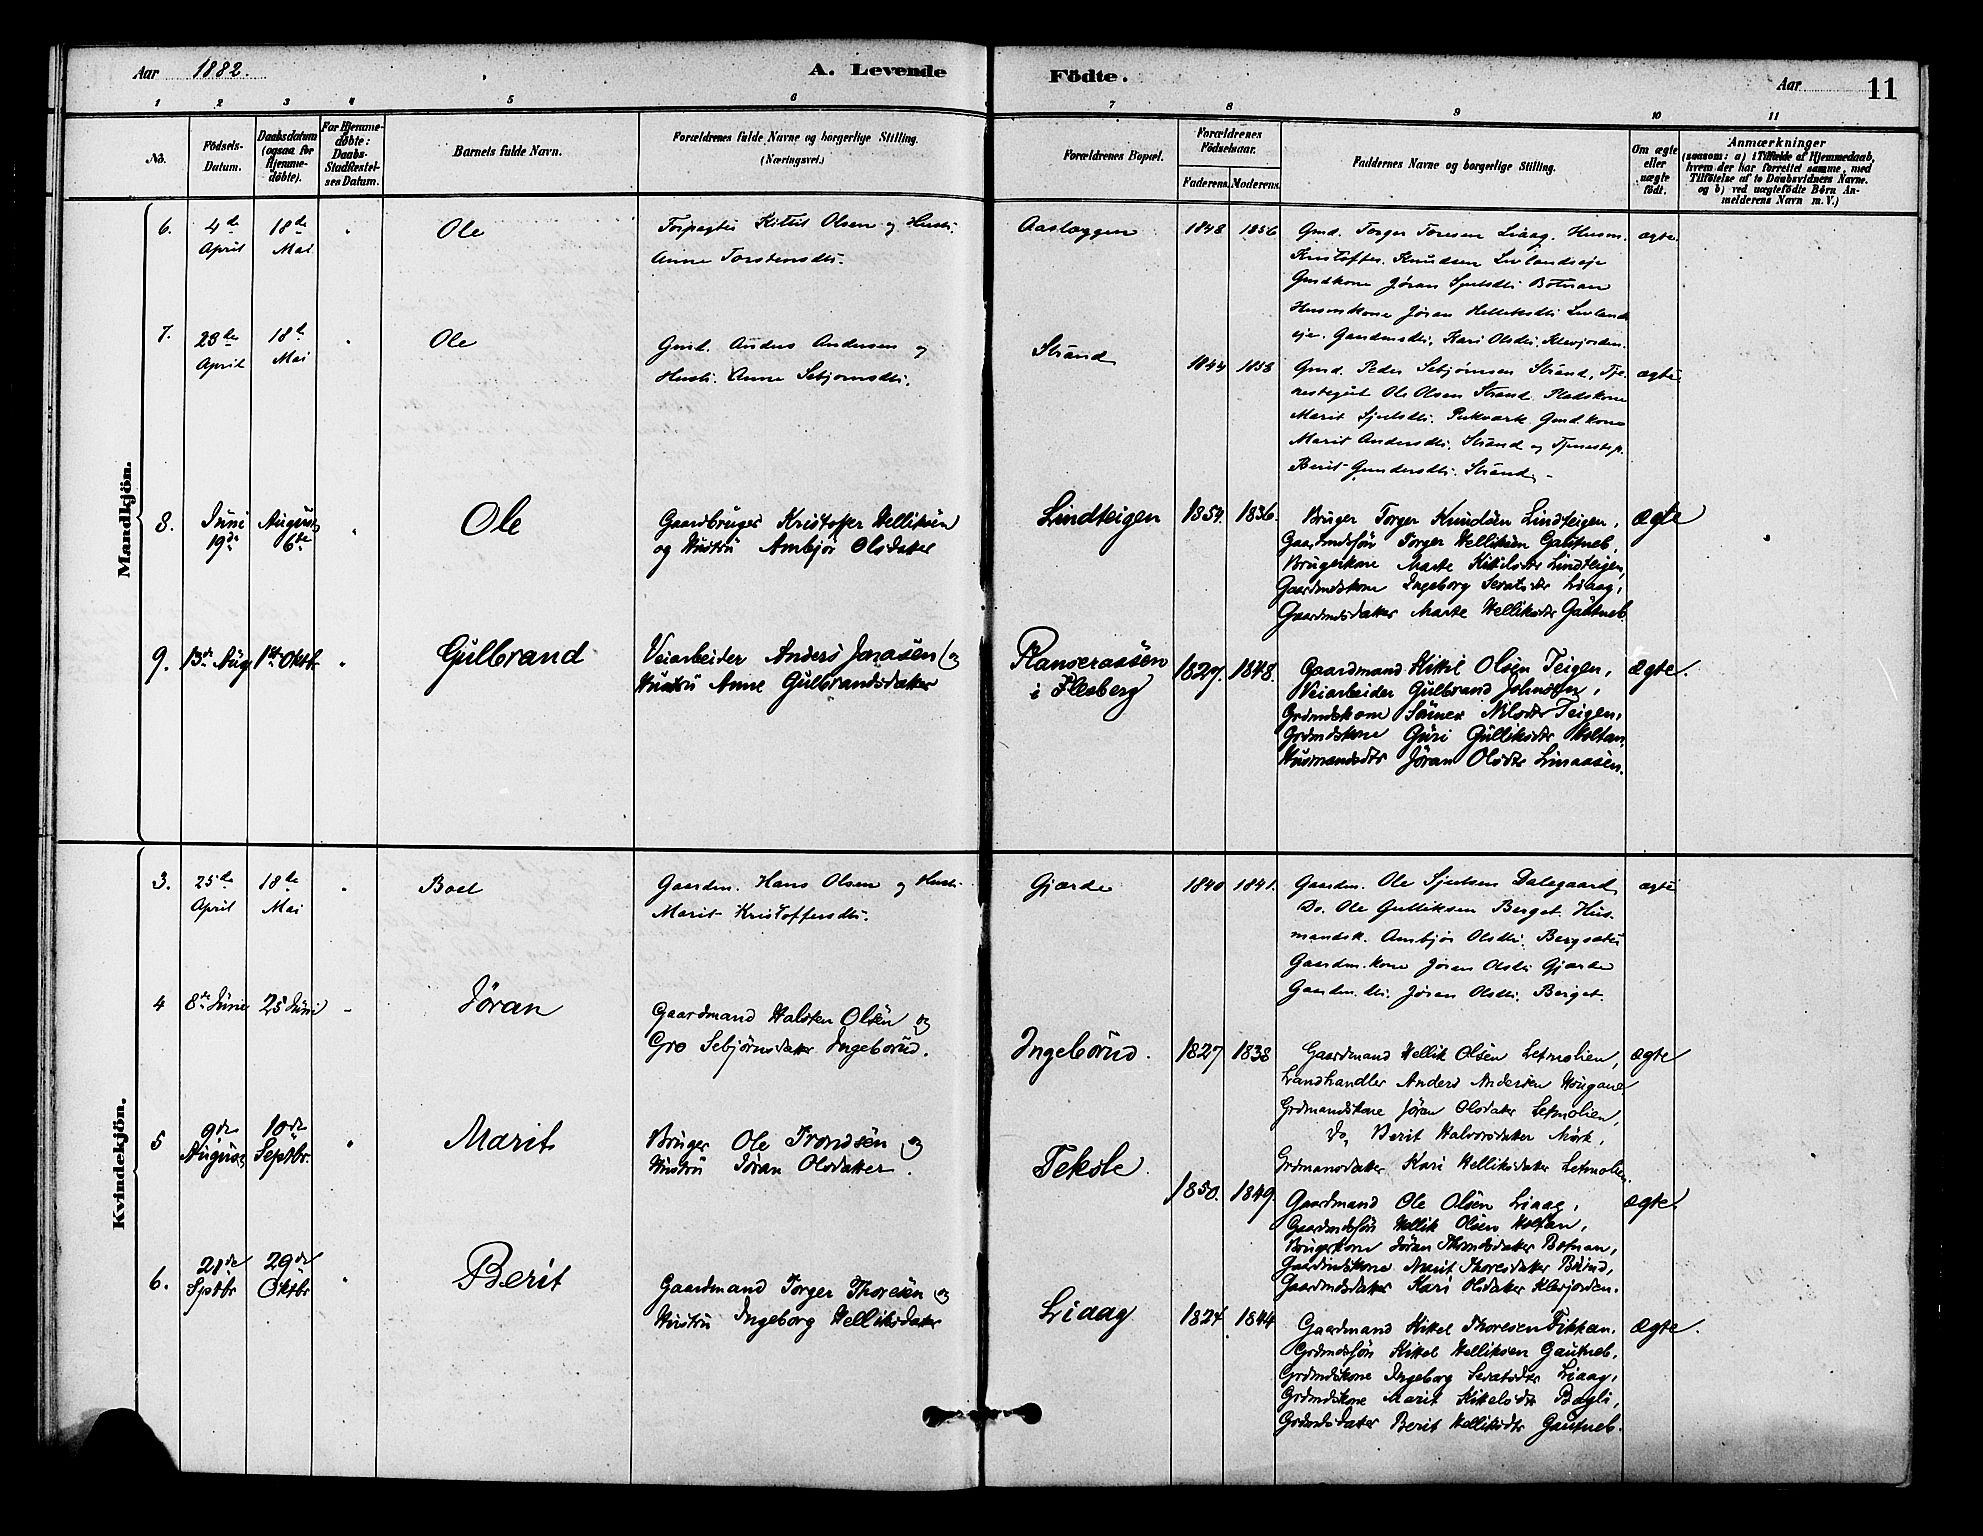 Aar 1882.
A. Levende Födte.
Aar
11
1 2 3 4 5 6 7 8 9 10 11
No.
Födsels-
Datum.
Daabsdatum
(ogsaa for
Hjemme-
döbte).
For Hjemme-
döbte:
Daabs-
Stadfæstel-
ses Datum.
Barnets fulde Navn.
Forældrenes fulde Navne og borgerlige Stilling.
(Næringsvei.)
Forældrenes Bopæl.
Forældrenes
Födselsaar.
Faderens. Moderens.
Faddernes Navne og borgerlige Stilling.
Om ægte
eller
uægte
födt.
Anmærkninger
(saasom: a) i Tilfælde af Hjemmedaab,
hvem der har forrettet samme, med
Tilföielse af to Daabsvidners Navne.
og b) ved uægtefödte Börn An-
melderens Navn m. V.)
Mandkjön.
6.
4de
April
18de
Mai
"
Ole
Kittil Olsen og Hust.
Anne Torstensdtr.
Aasloggen
1848 1856
Gmd. Torger Toresen Liaag. Husm.
Kristoffer Knudsen Livlandseje
Gmdkone Jøran Sjulsdtr Botnan
Husmkone Jøran Helliksdtr Livlands
eje. Gaardmdtr. Kari Olsdtr. Klevjorden.
ægte.
7.
23de
April
18de
Mai
"
Ole
Gmd. Anders Andersen og
Hust. Anne Sebjørnsdtr.
Strand
1844 1858
Gmd. Peder Sebjørnsen Strand, Tje-
nestegut Ole Olsen Strand. Pladskone
Marit Sjulsdtr. Gmd.kone
Marit Andersdtr. Strand og Tjenestep.
Berit Gundersdtr. Strand.
ægte
8.
Juni
19de
August
6te
"
Ole
Gaardbruger Kristofer Helliksen
og Hustru Ambjør Olsdater
Lindteigen
1854. 1836.
Bruger Torger Knudsen Lindteigen,
Gaardmdssøn Torger Helliksen Gautneb,
Brugerkone Marte Kittelsdtr Lindteigen,
Gaardmdskone Ingeborg Seratsdtr Liaag,
Gaardmdsdater Marte Helliksdtr Gautneb
ægte
9.
13de Aug
1ste Oktbr.
"
Gulbrand
Veiarbeider Anders Jonassen og
Hustru Anne Gulbrandsdater
i Flesberg
1827. 1848.
Gaardmand Kittil Olsen Teigen,
Veiarbeider Gulbrand Johnsen,
Grdmdskone Nilsdtr Teigen,
Grdmdskone Guri Gulliksdtr Holtan,
Husmandsdtr Jøran Olsdtr Linaasen.
ægte.
Kvindekjön.
3.
25de
April
18de
Mai
"
Boel
Gaardm. Hans Olsen og Hust.
Marit Kristoffersdtr.
Gjærde
1840 1841.
Gaardm. Ole Sjulsen Dalegaard
Do. Ole Gulliksen Berget. Hus-
mandsk. Ambjør Olsdtr. Bergsæter
Gaardm.kone Jøran Olsdtr Gjærde
Gaardm.dtr. Jøran Olsdtr. Berget.
ægte
4
8de Juni
25 Juni
"
Jøran
Gaardmand Halsten Olsen og
Gro Sebjørnsdater Ingeborud.
Ingeborud.
1827 1838
Gaardmand Hellik Olsen Letmolien,
Landhandler Anders Andersen Hougane
Grdmandskone Jøran Olsdater Letmolien,
Do Berit Halvorsdater Mørk,
Grdmandsdater Kari Helliksdater Letmolien.
ægte
5
9de
August
10de
Septbr.
"
Marit
Bruger Ole Trondsen og
Hustru Jøran Olsdater.
Teksle
1850. 1849.
Gaardmand Ole Olsen Liaag,
Gaardmdssøn Hellik Olsen Holtan,
Brugerkone Jøran Throndsdater Botnan,
Gaardmdskone Marit Thoresdater Bruind,
Gaardmdsdater Kari Olsdater Klevjorden.
ægte.
6.
28de
Septbr
29de
Oktbr
"
Berit
Gaardmand Torger Thoresen og
Hustru Ingeborg Helliksdater
Liaag
1824. 1844
Gaardmand Kittel Thoresen Fikkan,
Grdmdssøn Kittel Helliksen Gautneb,
Grdmdskone Ingeborg Seratsdtr Liaag,
Grdmdskone Marit Kittelsdtr Bagli,
Grdmdsdater Berit Helliksdtr Gautneb.
ægte.